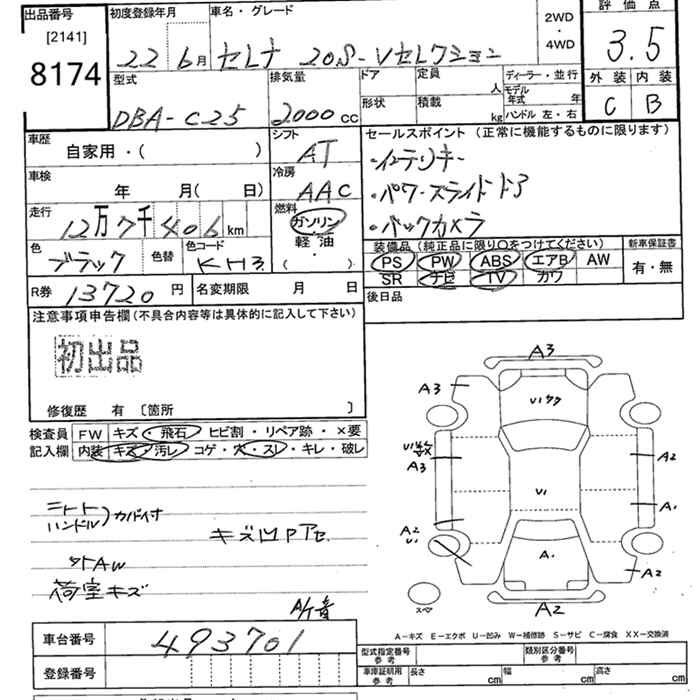 出品番号
[2141]
8174
初度登録年月
車名・グレード
2WD
・
4WD
評価点
22 6月 セレナ 20S-Vセレクション
3.5
型式
排気量
ドア
定員
人
ディーラー・並行
外装 内装
DBA-C25
2000cc
形状
積載
kg
モデル年式 年
ハンドル 左・右
C B
車歴
自家用・( )
シフト
AT
セールスポイント(正常に機能するものに限ります)
・インテリキー
車検
年 月( 日)
冷房
AAC
・パワースライドドア
走行
12万7千406km
燃料
ガソリン・
軽油・
( )
・バックカメラ
色
ブラック
色替
色コード
KH3
装備品(純正品に限り〇をつけてください)
新車保証書
PS PW ABS エアB AW
有・無
SR ナビ TV カワ
R券 13720円
名変期限 月 日
後日品
注意事項申告欄(不具合内容等は具体的に記入して下さい)
初出品
修復歴 有 〔箇所 〕
検査員
記入欄
FW キズ・飛石・ヒビ割・リペア跡・×要
内装 キズ・汚レ・コゲ・穴・スレ・キレ・破レ
シート
ハンドル)カバー付
キズ凹Pアセ
外AW
荷室キズ
A3
A3
U1
A3
A2
U1
A2
A1
U1
A1
A2
A2
スペア
A-キズ E-エクボ U-凹み W-補修跡 S-サビ C-腐食 XX-交換済
車台番号 493701
登録番号
型式指定番号
参考
類別区分番号
参考
車庫証明用
参考
長さ cm
幅 cm
高さ cm